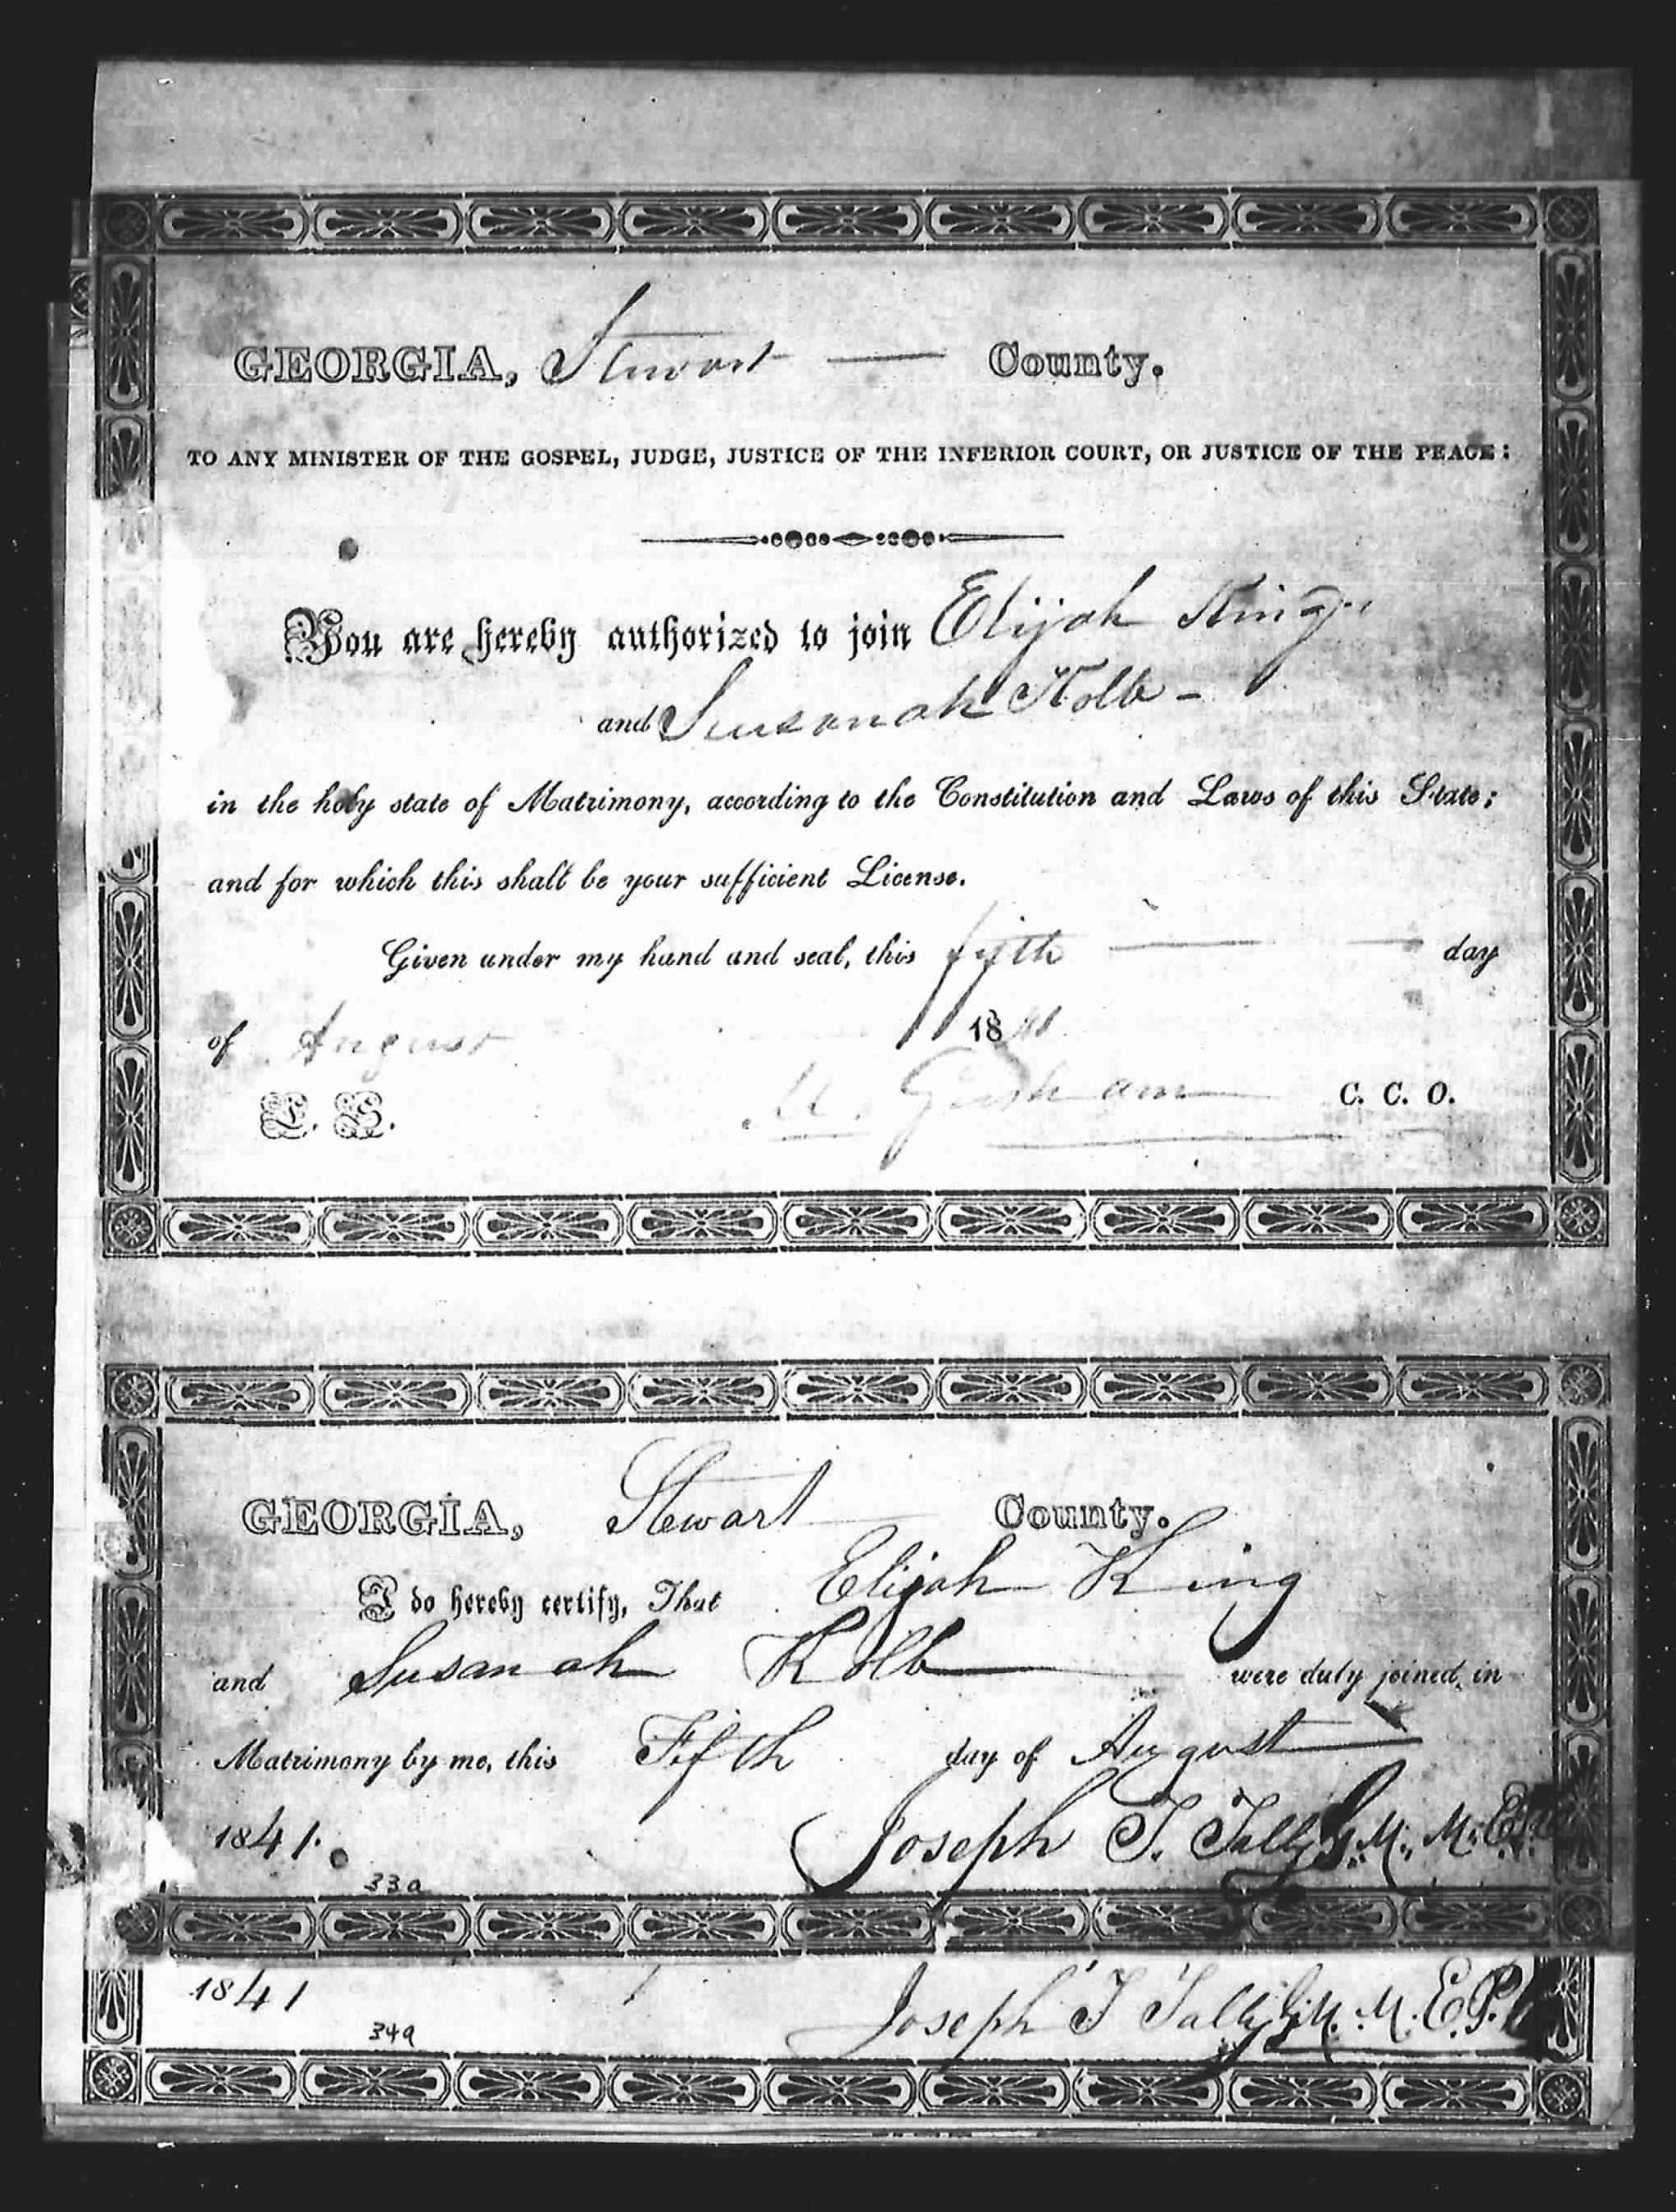 GEORGIA, Stewart County.
TO ANY MINISTER OF THE GOSPEL, JUDGE, JUSTICE OF THE INFERIOR COURT, OR JUSTICE OF THE PEACE:
You are hereby authorized to join Elijah King
and Susanah Kolb -
in the holy state of Matrimony, according to the Constitution and Laws of this State;
and for which this shall be your sufficient License.
Given under my hand and seal, this fifth day
of August 1841
L. S. M. Gresham C. C. O.
GEORGIA, Stewart County.
I do hereby certify, That Elijah King
and Susanah Kolb were duly joined in
Matrimony by me, this Fifth day of August
1841. Joseph T. Tally M. M. E.
33a
1841 Joseph T Tally M. M. E.
34a